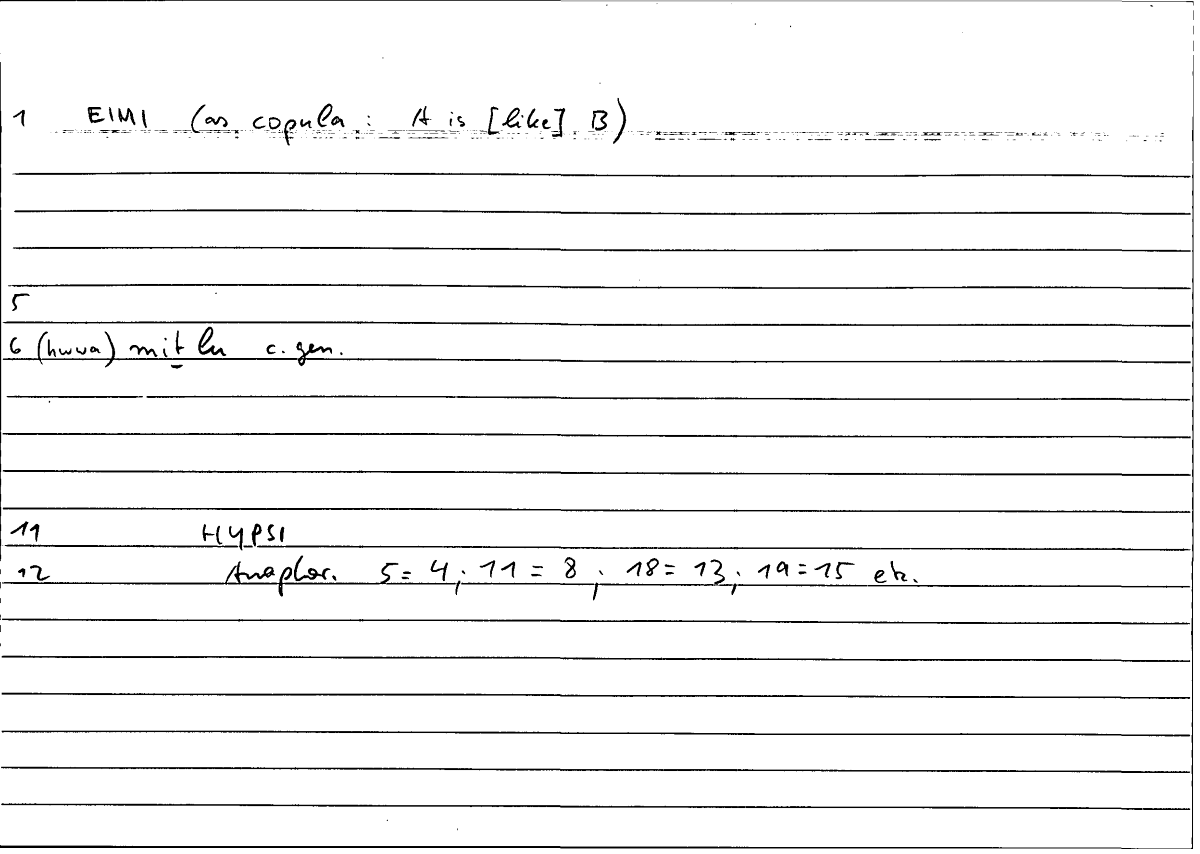 1 EIMI (as copula : A is [like] B)
5
6 (huwa) mitlu c. gen.
11 HYPSI
12 Anaphor. 5 = 4 ; 11 = 8 ; 18 = 13 ; 19 = 15 etc.